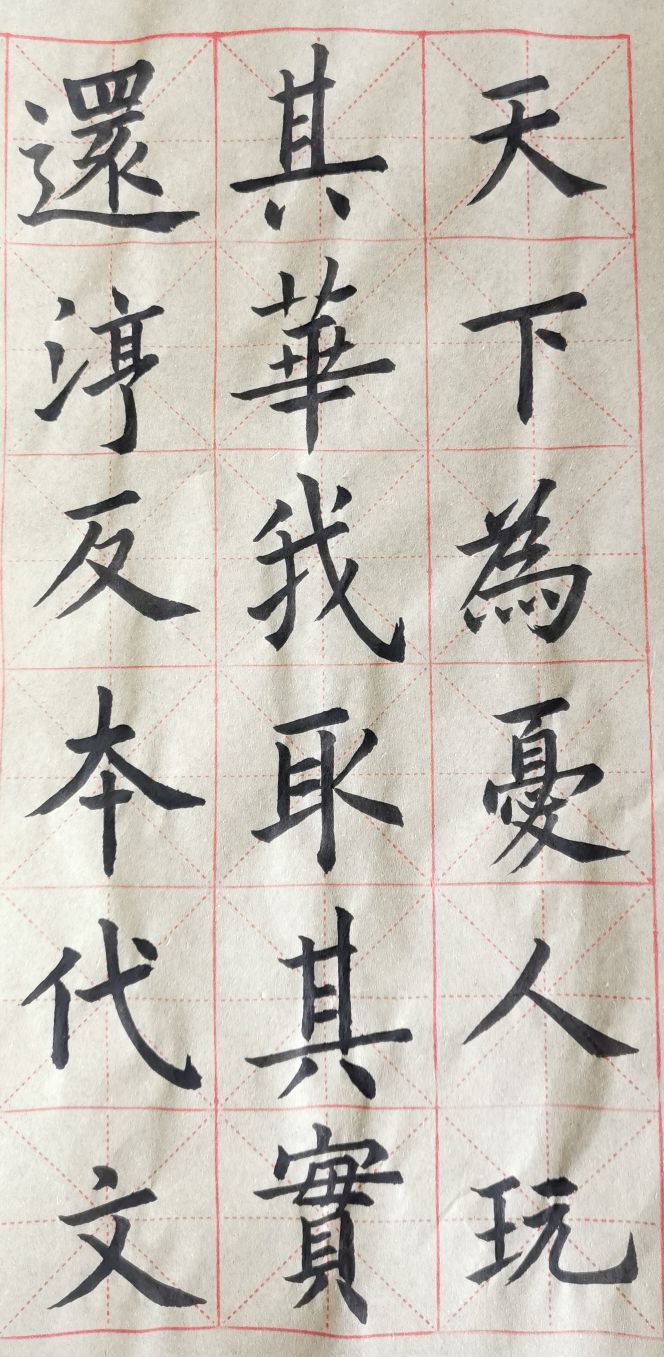 天下為憂人玩
其華我取其實
還淳反本代文